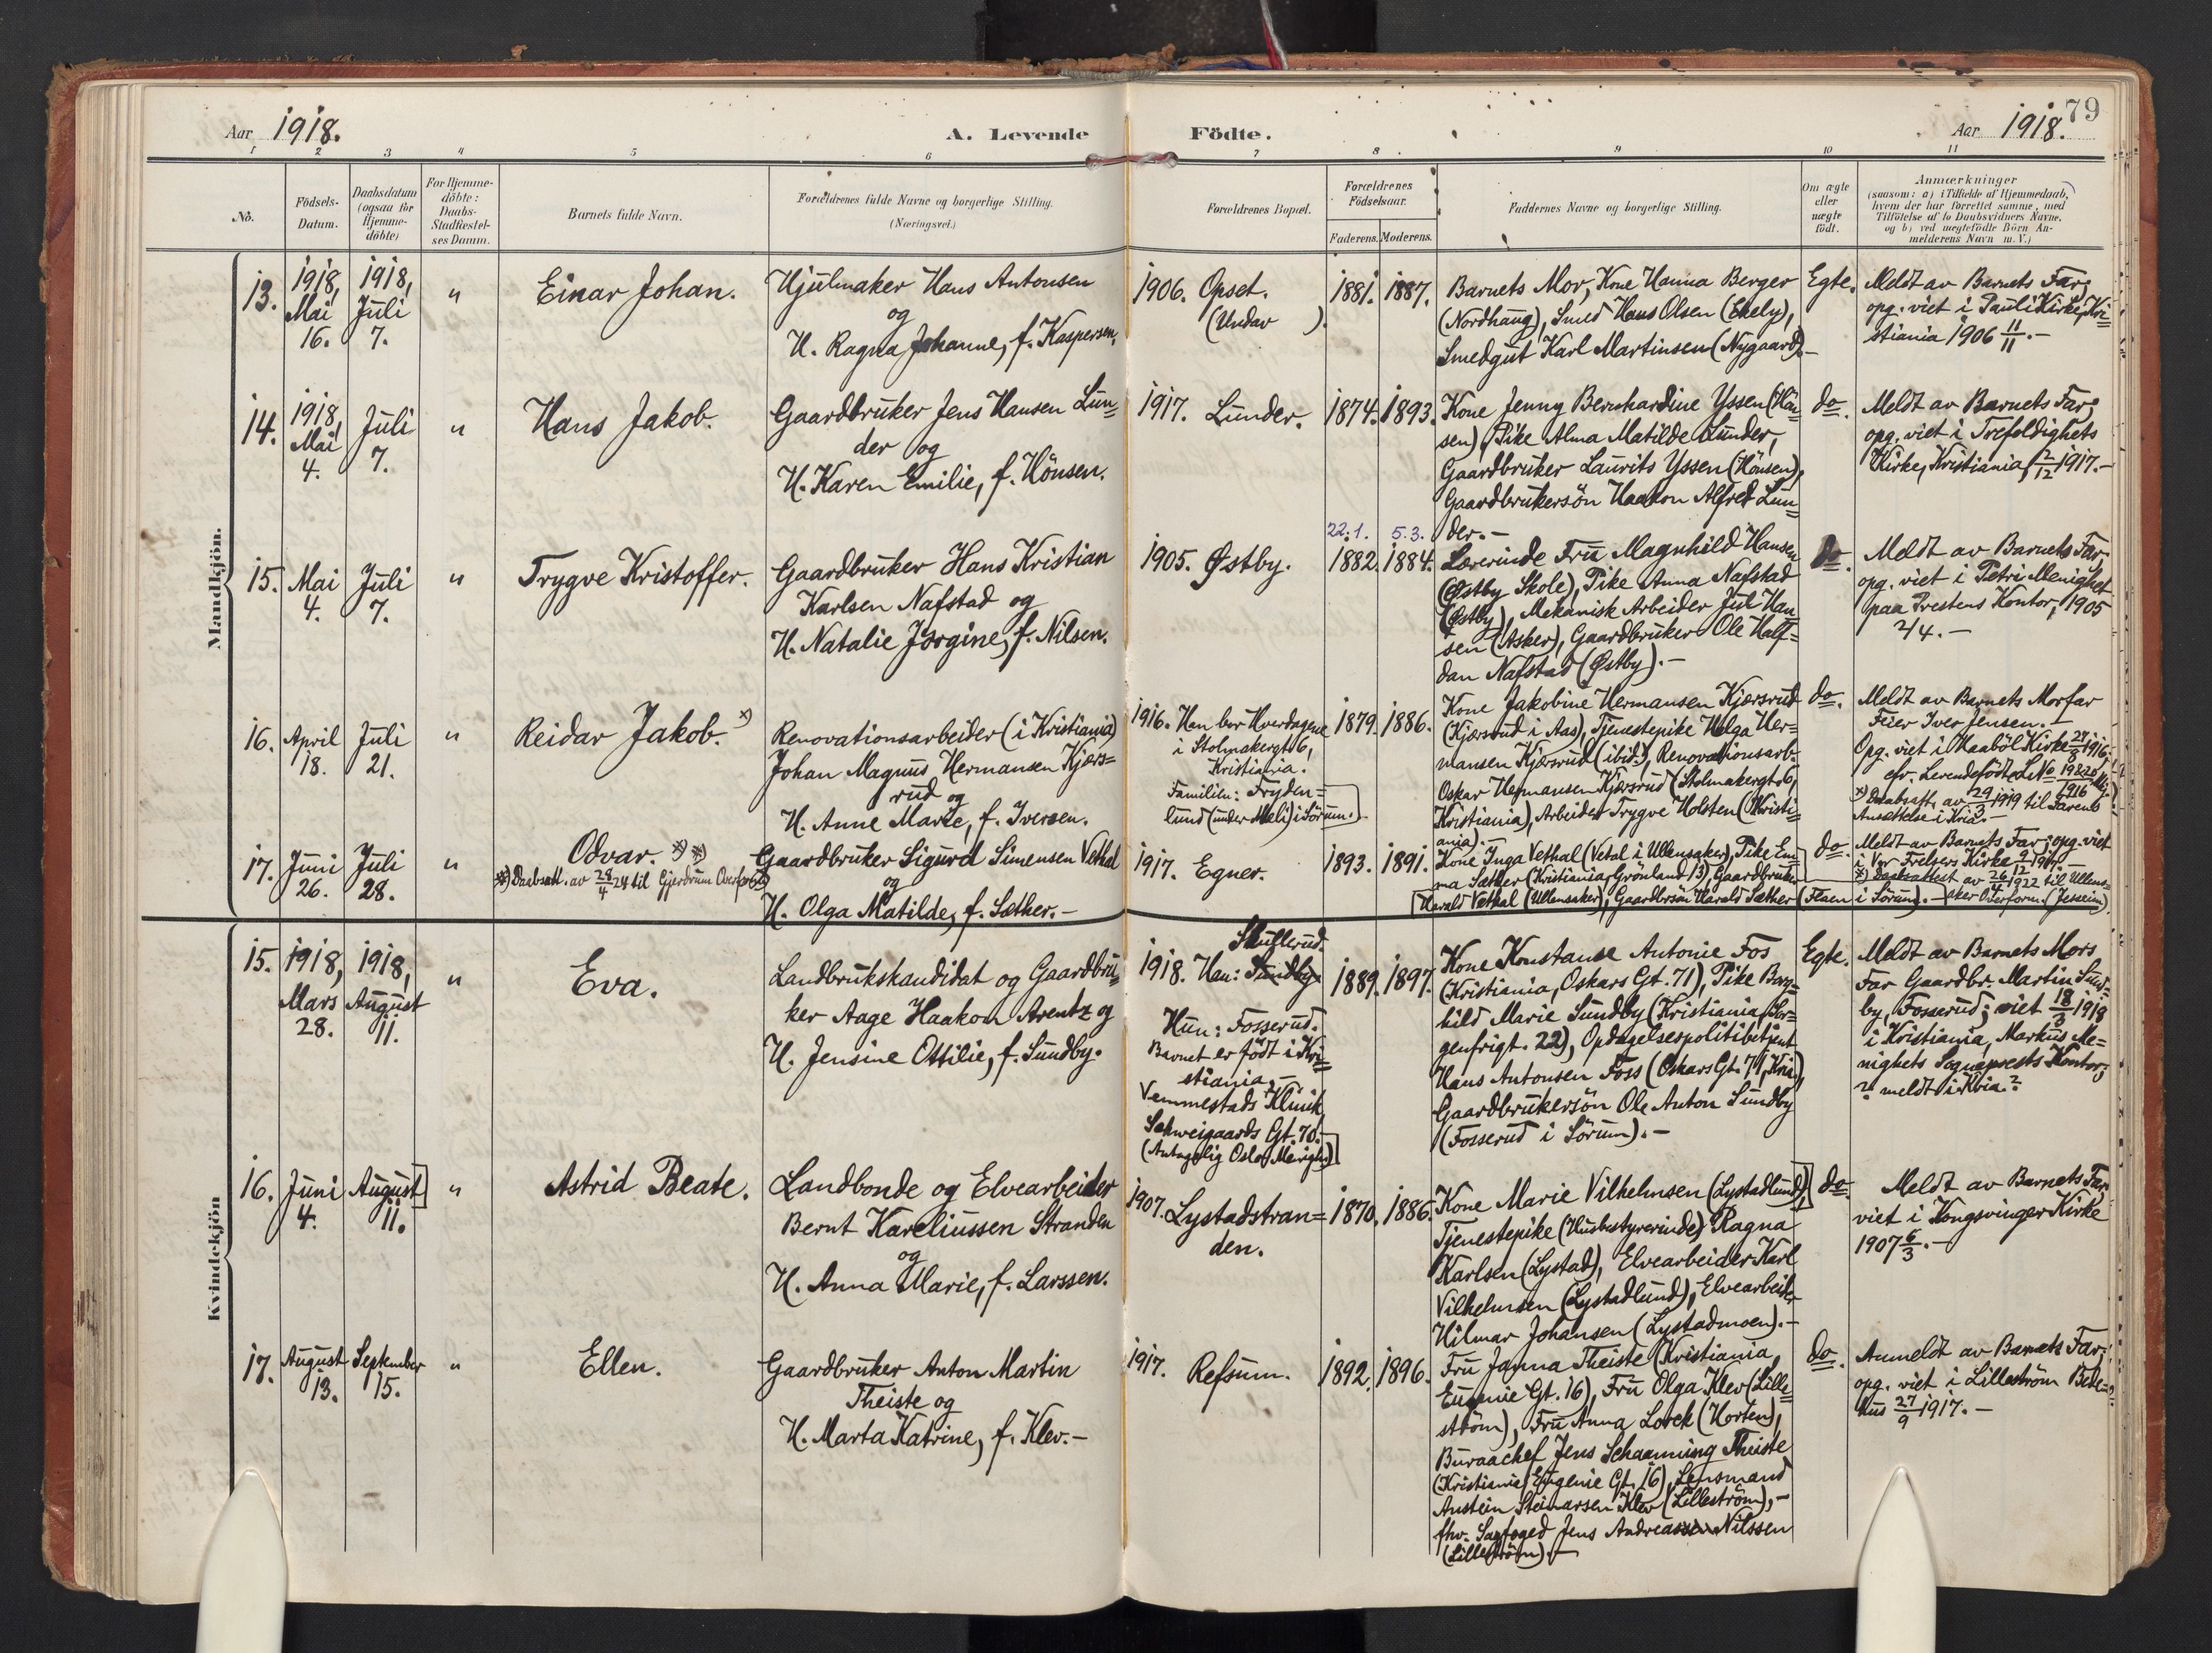 Aar 1918.
A. Levende Födte.
Aar 1918.
79
1 2 3 4 5 6 7 8 9 10 11
No.
Födsels-
Datum.
Daabsdatum
(ogsaa for
Hjemme-
döbte)
For Hjemme-
döbte:
Daabs-
Stadfæstel-
ses Datum.
Barnets fulde Navn.
Forældrenes fulde Navne og borgerlige Stilling.
(Næringsvei.)
Forældrenes Bopæl.
Forældrenes
Födselsaar.
Faderens. Moderens.
Faddernes Navne og borgerlige Stilling.
Om ægte
eller
uægte
födt.
Anmærkninger
(saasom: a) i Tilfælde af Hjemmedaab,
hvem der har forrettet samme, med
Tilföielse af to Daabsvidners Navne.
og b) ved uægtefödte Börn An-
melderens Navn m. V.)
Mandkjön.
13.
1918,
Mai
16.
1918,
Juli
7.
"
Einar Johan.
Hjulmaker Hans Antonsen
og
H. Ragna Johanne, f. Kaspersen.
1906. Opset.
(Undav ).
1881. 1887.
Barnets Mor, Kone Hanna Berger
(Nordhaug), Smed Hans Olsen (Ekely),
Smedgut Karl Martinsen (Nygaard).-
Egte.
Meldt av Barnets Far;
opg. viet i Pauli Kirke, Kri=
stiania 1906 11/11.-
14.
1918,
Mai
4.
Juli
7.
"
Hans Jakob.
Gaardbruker Jens Hansen Lun=
der og
H. Karen Emilie, f. Hönsen.
1917. Lunder.
1874. 1893.
Kone Jenny Bernhardine Yssen (Hön=
sen), Pike Alma Matilde Lunder,
Gaardbruker Laurits Yssen (Hönsen),
Gaardbrukersön Haakon Alfred Lun=
der.-
do.
Meldt av Barnets Far;
opg. viet i Trefoldigheds
Kirke, Kristiania, 2/12 1917.-
15.
Mai
4.
Juli
7.
"
Trygve Kristoffer.
Gaardbruker Hans Kristian
Karlsen Nafstad og
H. Natalie Jörgine, f. Nilsen.
1905. Østby.
22.1. 5.3.
1882. 1884.
Lærerinde Fru Magnhild Hansen
(Østby Skole), Pike Anna Nafstad
(Østby), Mekanisk Arbeider Jul Han
sen (Asker), Gaardbruker Ole Half=
dan Nafstad (Østby).-
do.
Meldt av Barnets Far.
opg. viet i Petri Menighet
paa Prestens Kontor, 1905
2/4.-
16.
April
18.
Juli
21.
"
Reidar Jakob. *)
Renovationsarbeider (i Kristiania)
Johan Magnus Hermansen Kjærs=
rud og
H. Anne Marie, f. Iversen.
1916. Han bor Hverdagene
i Stolmakergt. 6,
Kristiania.
Familien: Fryden=
lund (under Meli) i Sörum.
1879. 1886.
Kone Jakobine Hermansen Kjærsrud
(Kjærsrud i Aas), Tjenestepike Helga Her=
mansen Kjærsrud (ibid.), Renovationsarb.
Oskar Hermansen Kjærsrud (Stolmakergt. 6,
Kristiania), Arbeider Trygve Holsten (Kristi=
ania).
do.
Meldt av Barnets Morfar
Feier Iver Jensen.-
Opg. viet i Haaböl Kirke 1916
cfr. Levendefödte
*) Daabsatt. av 29/3 1919 til Farens
Ansættelse i Kria.-
17.
Juni
26.
Juli
28.
"
Odvar. *) **)
**) Daabsatt. av 28/4 24 til Gjerdrum Overform.
Gaardbruker Sigurd Simensen Vethal
og
H. Olga Matilde, f. Sæther.-
1917. Egner.
1893. 1891.
Kone Inga Vethal (Vetal i Ullensaker), Pike Em
ma Sæther (Kristiania, Grönland 13), Gaardbruker
Harald Vethal (Ullensaker), Gaardbrsön Harald Sæther (Flaen i Sörum).-
do.
Meldt av Barnets Far; opg. viet
i Vor Frelsers Kirke 9/12 1917.-
*) Daabsattest av 26/4 1922 til Ullens=
aker Overform. (Jessheim)
Kvindekjön
15.
1918,
Mars
28.
1918,
August
11.
"
Eva.
Landbrukskandidat og Gaardbru=
ker Aage Haakon Arentz og
H. Jensine Ottilie, f. Sundby.
Skullerud.
1918. Han: Sundby
Hun: Fosserud.
Barnet er födt i Kri=
stiania.-
Vemmestads Klinik,
Schweigaards Gt. 70.
(Antagelig Oslo Menigh.)
1889. 1897.
Kone Konstanse Antonie Fos
(Kristiania, Oskars Gt. 71), Pike Borg=
hild Marie Sundby (Kristiania, Sor=
genfrigt. 22), Opdagelsespolitibetjent
Hans Antonsen Foss (Oskars Gt. 71, Kria),
Gaardbrukersön Ole Anton Sundby
(Fosserud i Sörum).-
Egte.
Meldt av Barnets Mors
Far Gaardbr. Martin Sund=
by, Fosserud; viet 18/3 1918
i Kristiania, Markus Me=
nighets Sogneprests Kontor;
? meldt i Kria?
16.
Juni
4.
August
11.
"
Astrid Beate.
Landbonde og Elvearbeider
Bernt Kareliussen Stranden
og
H. Anna Marie, f. Larssen.
1907. Lystadstran=
den.
1870. 1886.
Kone Marie Vilhelmsen (Lystadlund),
Tjenestepike (Husbestyrerinde) Ragna
Karlsen (Lystad), Elvearbeider Karl
Vilhelmsen (Lystadlund), Elvearbeider
Hilmar Johansen (Lystadmoen).-
do.
Meldt av Barnets Far,
viet i Kongsvinger Kirke
1907 6/3.-
17.
August
13.
September
15.
"
Ellen.
Gaardbruker Anton Martin
Theiste og
H. Marta Katrine, f. Klev.-
1917. Refsum.
1892. 1896.
Fru Janna Theiste (Kristiania,
Eugenie Gt. 16), Fru Olga Klev (Lille=
ström), Fru Anna Lorck (Horten),
Buraachef Jens Schaanning Theiste
(Kristiania, Eugenie Gt. 16), Lensmand
Austein Steinarsen Klev (Lilleström),-
fhv. Sagfoged Jens Andreassen Nilssen
(Lilleström).-
do.
Anmeldt av Barnets Far;
opg. viet i Lilleström Bede=
hus 27/9 1917.-